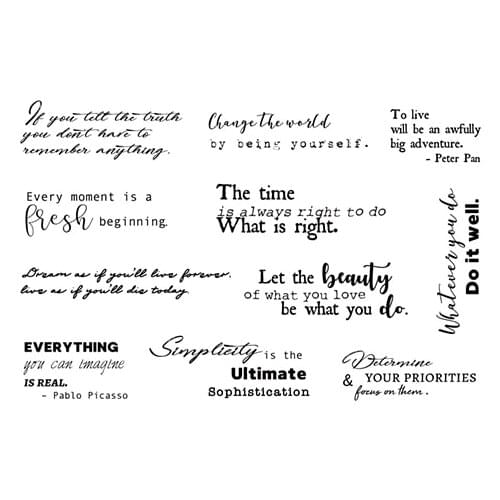 If you tell the truth
you don't have to
remember anything.
Change the world
by being yourself.
To live
will be an awfully
big adventure.
- Peter Pan
Every moment is a
fresh beginning.
The time
is always right to do
What is right.
Whatever you do
Do it well.
Dream as if you'll live forever,
live as if you'll die today
Let the beauty
of what you love
be what you do.
EVERYTHING
you can imagine
IS REAL.
- Pablo Picasso
Simplicity is the
Ultimate
Sophistication
Determine
& YOUR PRIORITIES
focus on them.